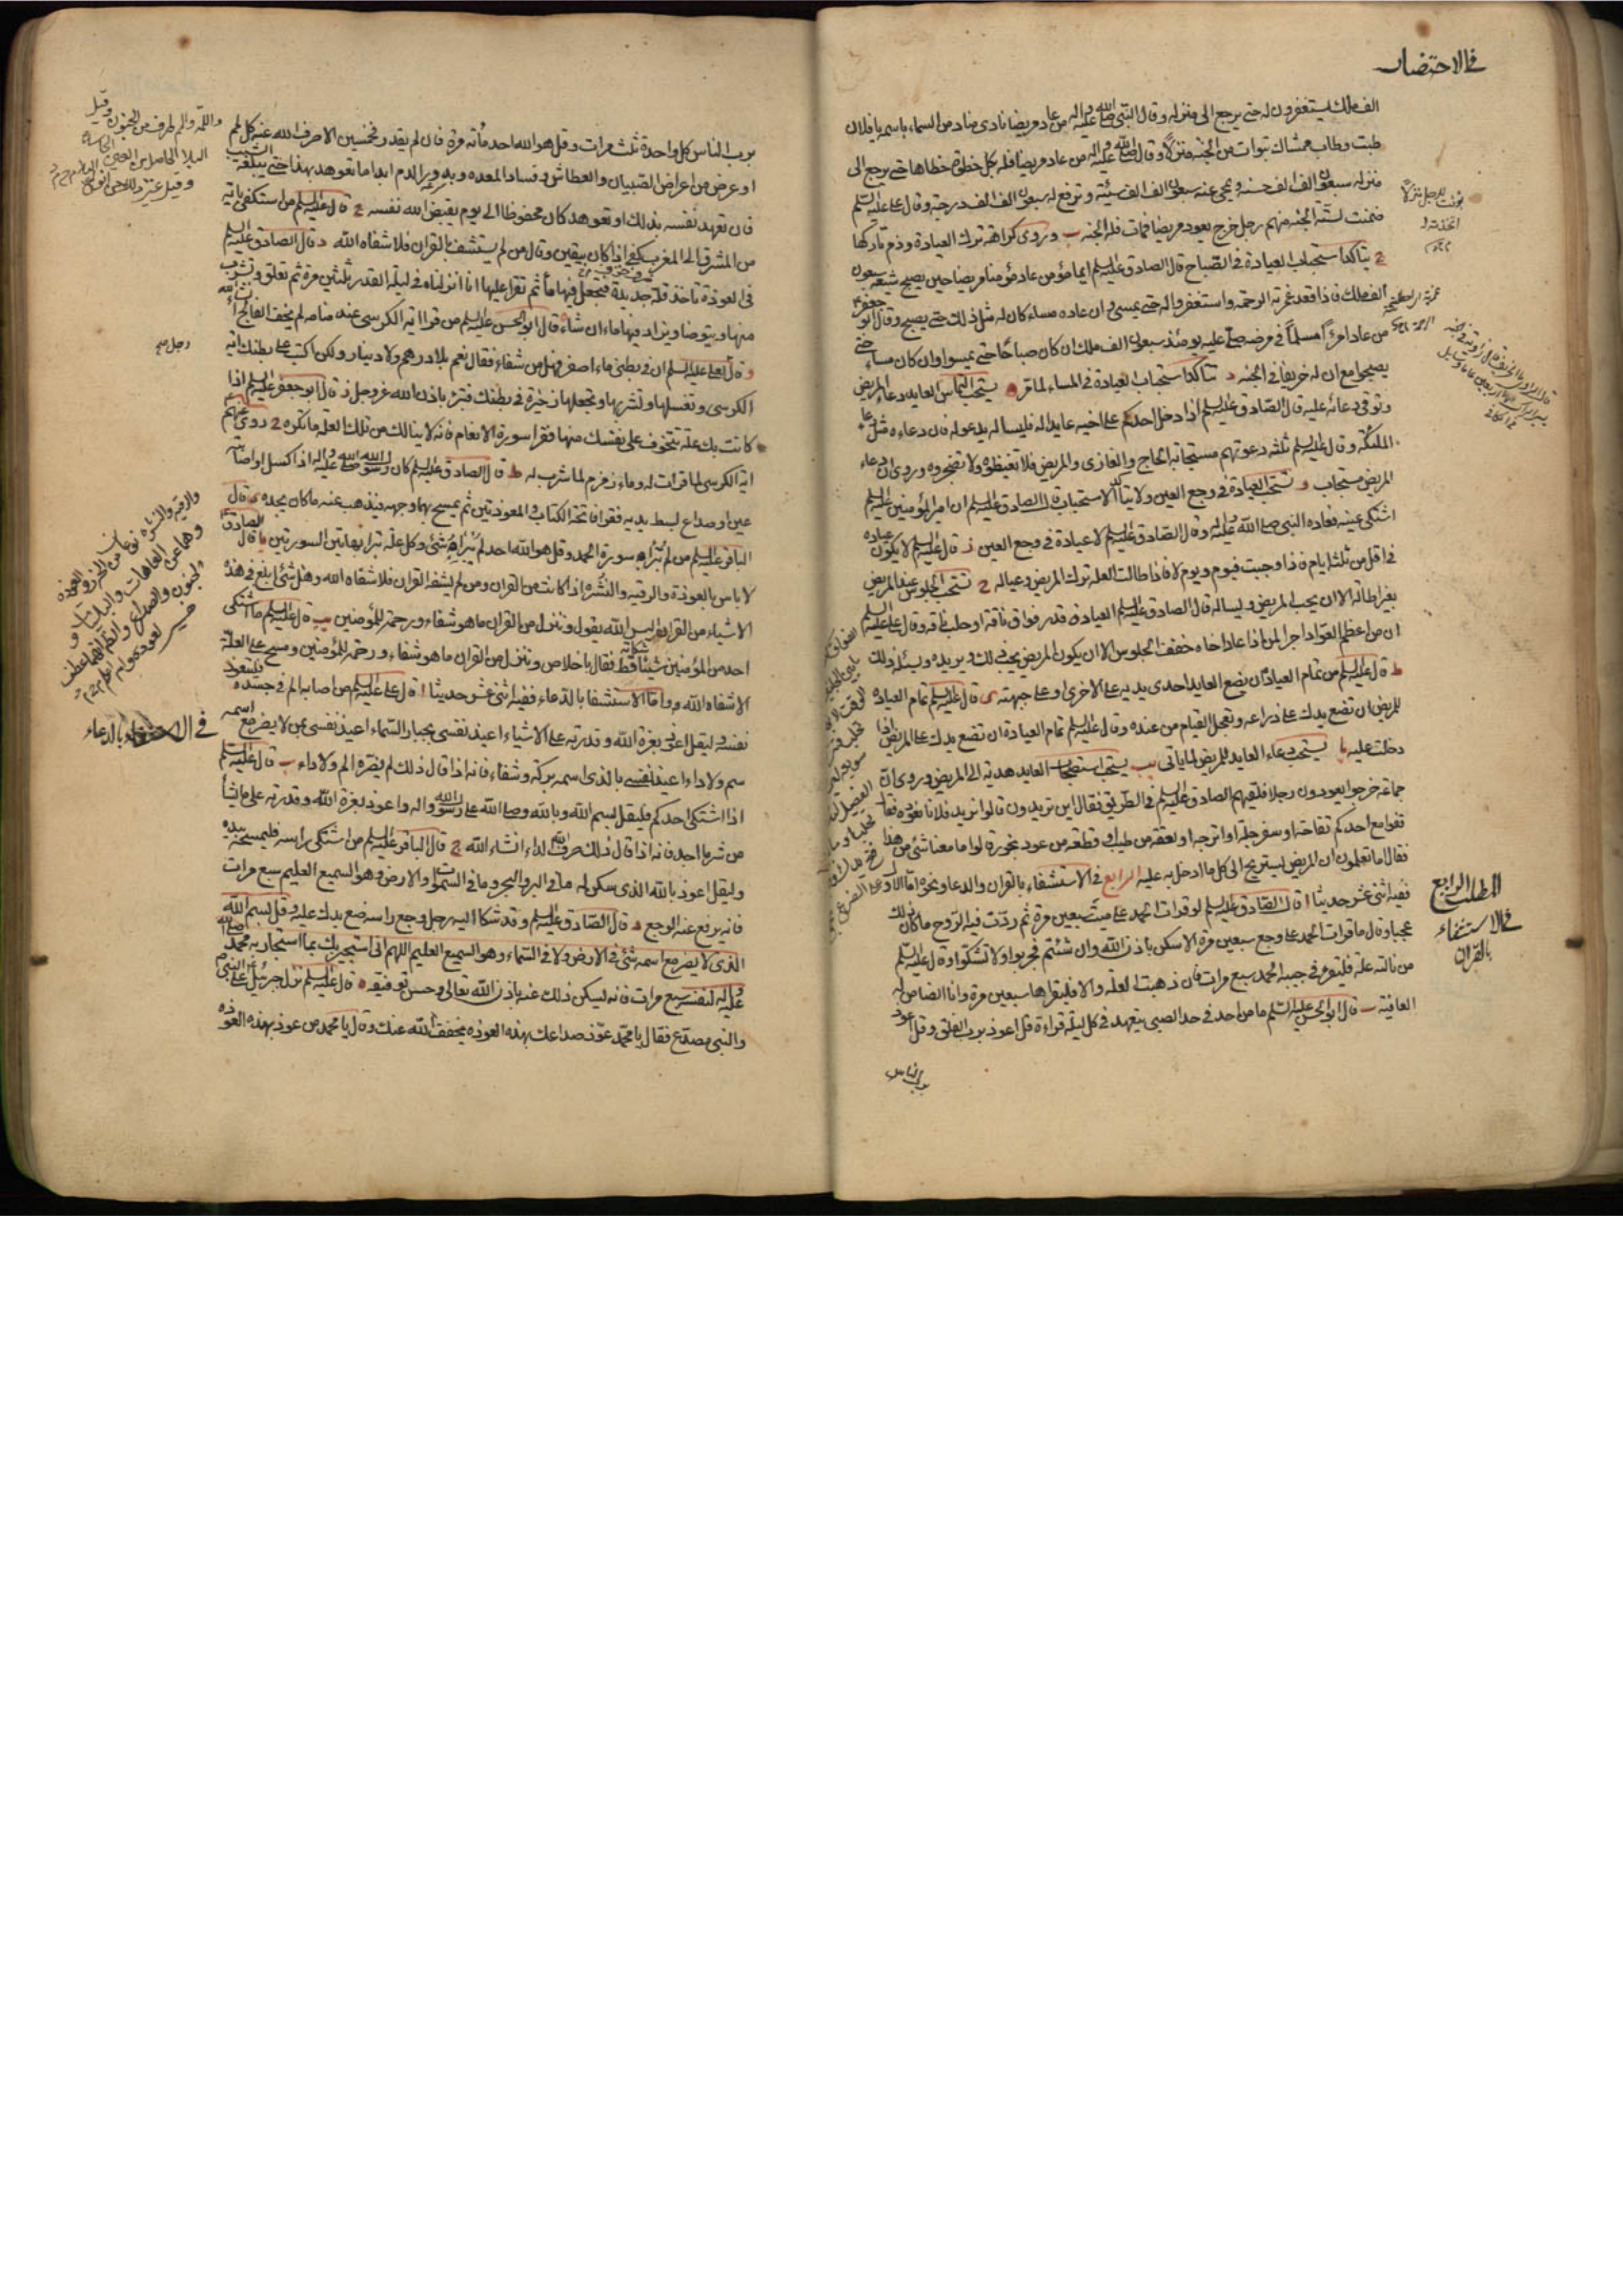 في الاحتضار
الف ملك يستغفرون له حتى يرجع الى منزله وقال النبي صلى الله عليه واله من عاد مريضا نادى مناد من السماء باسمه يا فلان
طبت وطاب ممشاك تبوات من الجنة منزلا وقال صلى الله عليه واله من عاد مريضا فله بكل خطوة خطاها حتى يرجع الى
منزله سبعون الف الف حسنة ويمحى عنه سبعون الف الف سيئة وترفع له سبعون الف الف درجة وقال على عليه السلم
ضمنت لستة الجنة منهم رجل خرج يعود مريضا فمات فله الجنة ب وروى كراهة ترك العيادة وذم تاركها
ج يتاكد استحباب العيادة في الصباح قال الصادق عليه السلم ايما مؤمن عاد مؤمنا مريضا حين يصبح شيعه سبعون
الف ملك فاذا قعد غمرته الرحمة واستغفروا له حتى يمسى وان عاده مساء كان له مثل ذلك حتى يصبح وقال ابو جعفر ع
من عاد امرأ مسلما في مرضه صلى عليه يومئذ سبعون الف ملك ان كان صباحا حتى يمسوا وان كان مساء حتى
يصبحوا مع ان له خريفا في الجنة د يتاكد استحباب العيادة في المساء لما مر ه يستحب التماس العايد دعاء المريض
وتوقى دعائه عليه قال الصادق عليه السلم اذا دخل احدكم على اخيه عايدا له فليساله يدعو له فان دعاءه مثل دعاء
الملئكة وقال عليه السلم ثلثة دعوتهم مستجابة الحاج والغازى والمريض فلا تغيظوه ولا تضجروه وروى ان دعاء
المريض مستجاب و تستحب العيادة في وجع العين ولا يتاكد الاستحباب قال الصادق عليه السلم ان امير المؤمنين عليه السلم
اشتكى عينه فعاده النبي صلى الله عليه واله وقال الصادق عليه السلم لا عيادة في وجع العين ز قال عليه السلم لا يكون عيادة
في اقل من ثلثة ايام فاذا وجبت فيوم ويوم لا فاذا طالت العلة ترك المريض وعياله ح تستحب الجلوس عند المريض
بغير اطالة الا ان يحب المريض ويساله قال الصادق عليه السلم العيادة قدر فواق ناقة او حلب ناقة وقال على عليه السلم
ان من اعظم العواد اجرا لمن اذا عاد اخاه خفف الجلوس الا ان يكون المريض يحب ذلك ويريده ويسئله ذلك
ط قال عليه السلم من تمام العيادة ان يضع العايد احدى يديه على الاخرى او على جبهته ى قال عليه السلم تمام العيادة
للمريض ان تضع يدك على ذراعه وتعجل القيام من عنده وقال عليه السلم تمام العيادة ان تضع يدك على المريض اذا
دخلت عليه يا يستحب دعاء العايد للمريض لما ياتى يب يستحب استصحاب العايد هدية الى المريض وروى ان
جماعة خرجوا يعودون رجلا فلقيهم الصادق عليه السلم في الطريق فقال اين تريدون قالوا نريد فلانا نعوده فقال
قفوا مع احدكم تفاحة او سفرجلة او اترجة او لعقة من طيب او قطعة من عود بخور قالوا ما معنا شئ من هذا
فقال اما تعلمون ان المريض يستريح الى كل ما ادخل به عليه الرابع في الاستشفاء بالقران والدعا ونحوه اما الاول
ففيه اثنى عشر حديثا ا قال الصادق عليه السلم لو قرات الحمد على ميت سبعين مرة ثم ردت فيه الروح ما كان ذلك
عجبا وقال ما قرات الحمد على وجع سبعين مرة الا سكن باذن الله وان شئتم فجربوا ولا تشكوا وقال عليه السلم
من نالته علة فليقرء في جيبه الحمد سبع مرات فان ذهبت العلة والا فليقراها سبعين مرة وانا الضامن له
العافية ب قال ابو الحسن عليه السلم ما من احد في حد الصبى يتعهد في كل ليلة قراءة قل اعوذ برب الفلق وقل اعوذ
برب الناس
المطلب الرابع
في الاستشفاء
بالقران
برب الناس كل واحدة ثلث مرات وقل هو الله احد مأته مرة فان لم يقدر فخمسين الا صرف الله عنه كل لمم
او عرض من اعراض الصبيان والعطاش وفساد المعدة وبدور الدم ابدا ما تعوهد بهذا حتى يبلغه الشيب
فان تعهد نفسه بذلك او تعوهد كان محفوظا الى يوم يقبض الله نفسه ج قال عليه السلم من استكفى باية
من المشرق الى المغرب كفى اذا كان بيقين وقال من لم يستشف بالقران فلا شفاه الله د قال الصادق عليه السلم
في العوذة تاخذ قلة جديدة فتجعل فيها ماء ثم تقرا عليها انا انزلناه في ليلة القدر ثلثين مرة ثم تعلق وتشرب
منها ويتوضا ويزاد فيها ماء ان شاء ه قال ابو الحسن عليه السلم من قرا اية الكرسى عند منامه لم يخف الفالج ان شاء الله
و قال لعلى عليه السلم ان في بطنى ماء اصفر فهل من شفاء فقال نعم بلا درهم ولا دينار ولكن اكتب على بطنك اية
الكرسى وتغسلها وتشربها وتجعلها ذخيرة في بطنك فتبرء باذن الله عز وجل ز قال ابو جعفر عليه السلم اذا
كانت بك علة تتخوف على نفسك منها فقرا سورة الانعام فانه لا ينالك من تلك العلة ما تكره ح روى عنهم
اية الكرسى لما قرات له وماء زمزم لما شرب له ط قال الصادق عليه السلم كان رسول الله صلى الله عليه واله اذا كسل او اصابته
عين او صداع بسط يديه فقرا فاتحة الكتاب والمعوذتين ثم يمسح بهما وجهه فيذهب عنه ما كان يجده ى قال
الباقر عليه السلم من لم تبراه سورة الحمد وقل هو الله احد لم يبراه شئ وكل علة تبرا بهاتين السورتين يا قال الصادق
لا باس بالعوذة والرقية والنشره اذا كانت من القران ومن لم يشفه القران فلا شفاه الله وهل شئ ابلغ في هذه
الاشياء من القران اليس الله يقول وننزل من القران ما هو شفاء ورحمة للمؤمنين يب قال عليه السلم ما اشتكى
احد من المؤمنين شيئا قط فقال باخلاص وننزل من القران ما هو شفاء ورحمة للمؤمنين ومسح على العلة
الا شفاه الله واما الاستشفا بالدعاء ففيه اثنى عشر حديثا ا قال على عليه السلم من اصابه الم في جسده فليعوذ
نفسه وليقل اعوذ بعزة الله وقدرته على الاشياء اعيذ نفسى بجبار السماء اعيذ نفسى بمن لا يضر مع اسمه
سم ولا داء اعيذ نفسى بالذى اسمه بركة وشفاء فانه اذا قال ذلك لم يضره الم ولا داء ب قال عليه السلم
اذا اشتكى احدكم فليقل بسم الله وبالله وصلى الله على رسول الله واله واعوذ بعزة الله وقدرته على ما يشأ
من شر ما اجد فانه اذا قال ذلك صرف الله الداء انشاء الله ج قال الباقر عليه السلم من اشتكى راسه فليمسحه بيده
وليقل اعوذ بالله الذى سكن له ما في البر والبحر وما في السموات والارض وهو السميع العليم سبع مرات
فانه يرفع عنه الوجع د قال الصادق عليه السلم وقد شكا اليه رجل وجع راسه ضع يدك عليه وقل بسم الله
الذى لا يضر مع اسمه شئ في الارض ولا في السماء وهو السميع العليم اللهم انى استجيرك بما استجار به محمد صلى الله
عليه واله لنفسه سبع مرات فانه يسكن ذلك عنه باذن الله تعالى وحسن توفيقه ه قال عليه السلم نزل جبرئيل على النبى ص
والنبى مصدع فقال يا محمد عوذ صداعك بهذه العوذه يخفف الله عنك وقال يا محمد من عوذ بهذه العوذه
في الاستشفاء بالدعاء